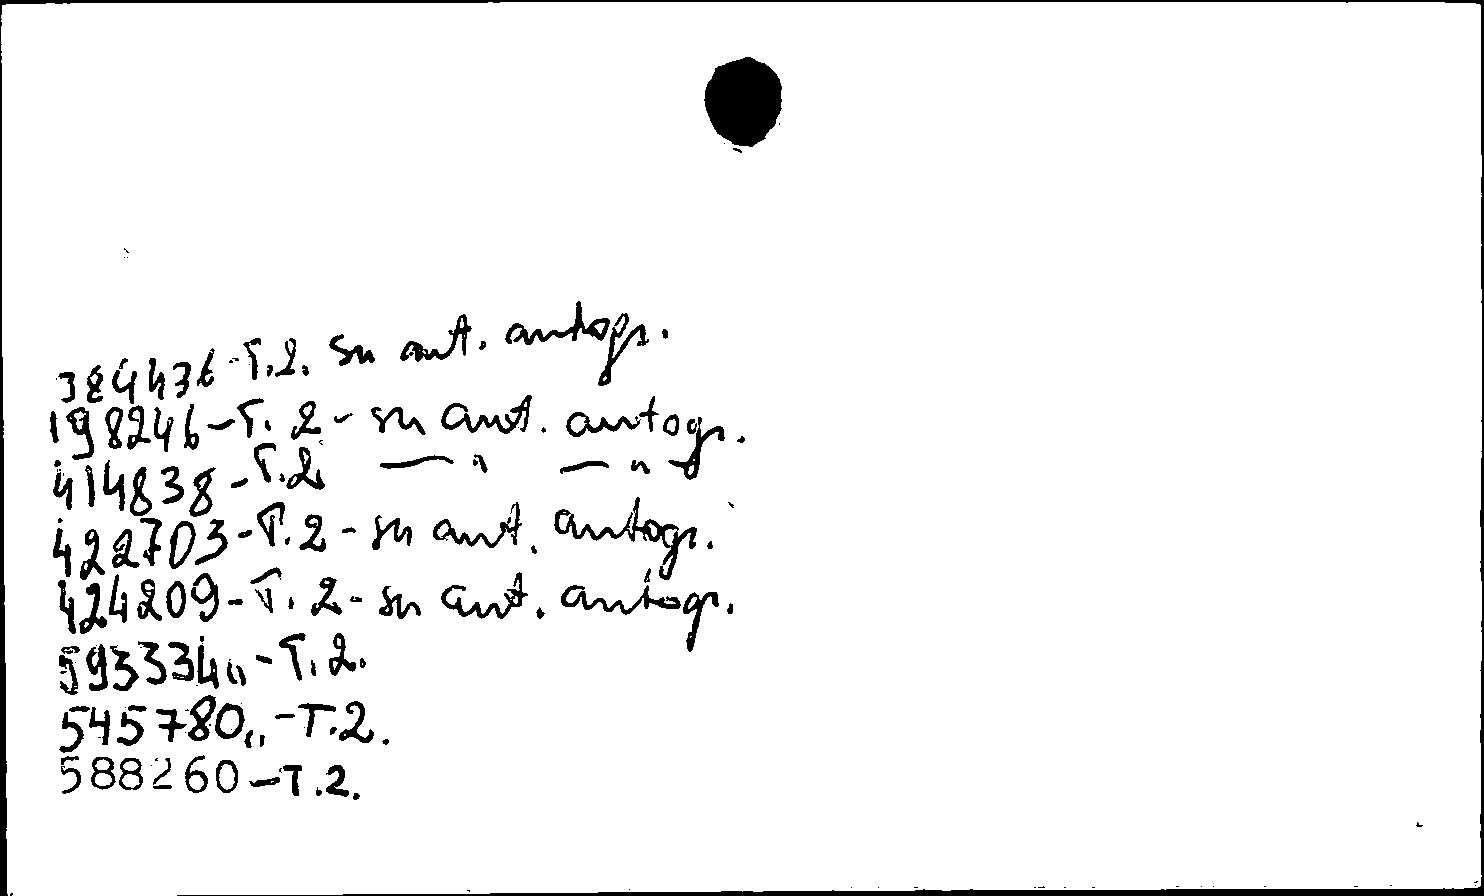 384436-T.2. su aut. autogr.
198246-T. 2 - su aut. autogr.
414838-T.2. — " — " —
422703-T.2 - su aut. autogr.
424209-T. 2 - su aut. autogr.
593334"-T.2.
545780"-T.2.
588260-T.2.